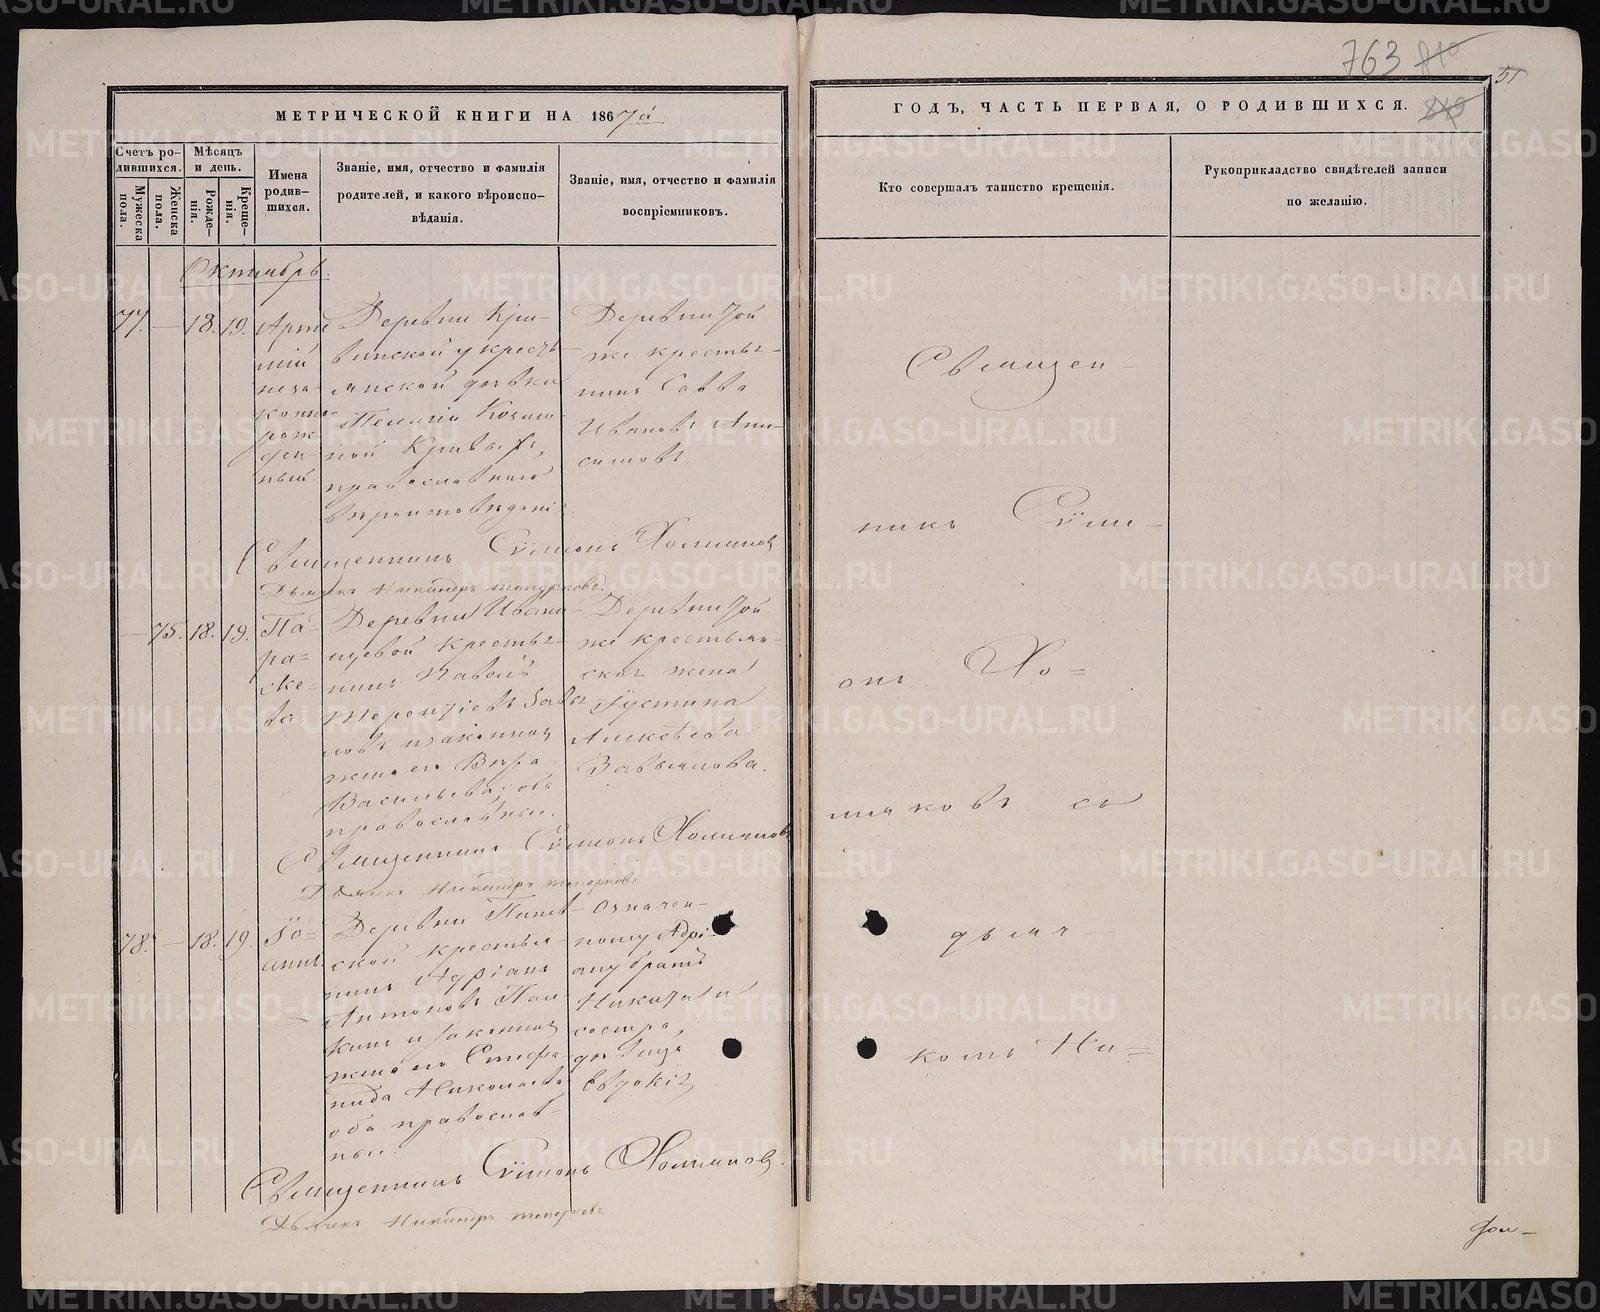 763
51
МЕТРИЧЕСКОЙ КНИГИ НА 1867й
ГОДЪ, ЧАСТЬ ПЕРВАЯ, О РОДИВШИХСЯ.
Счетъ родившихся.
Мужеска пола.
Женска пола.
Мѣсяцъ и день.
Рожденія.
Крещенія.
Имена родившихся.
Званіе, имя, отчество и фамилія
родителей, и какого вѣроиспо-
вѣданія.
Званіе, имя, отчество и фамилія
воспріемниковъ.
Кто совершалъ таинство крещенія.
Рукоприкладство свидѣтелей записи
по желанію.
Октябрь.
77. — 18. 19.
Арте
мій
неза-
конно-
рож-
ден-
ный.
Деревни Кри-
винской у кресть
янской дѣвки
Пелагіи
ной Кривыхъ,
православнаго
вѣроисповѣданія.
Деревни той
же крестья-
нинъ Савва
Ивановъ Ани-
симовъ.
Священникъ Сѵмеонъ Холмяковъ
Дьячекъ Никандръ Топорковъ.
— 75. 18. 19.
Па-
ра-
ске-
ва.
Деревни Ивани-
щевой крестья-
нинъ Павелъ
Терентіевъ Завья
ловъ и законная
жена его Вѣра
Васильева, оба
православные.
Деревни той
же крестьян-
ская жена
Іустина
Алексѣева
Завьялова.
Священникъ Сѵмеонъ Холмяковъ
Дьячекъ Никандръ Топорковъ
78. — 18. 19.
Іо-
аннъ.
Деревни
ской крестья-
нинъ Адріанъ
Антоновъ Пал-
кинъ и законная
жена его Степа-
нида Николаева
оба православ-
ные.
Означен-
ному Адрі-
ану братъ
Никита и
сестра,
дѣвица
Евдокія
Священникъ Сѵмеонъ Холмяковъ.
Дьячекъ Никандръ Топорковъ
Священ-
никъ Сѵме-
онъ Хо-
лмяковъ съ
дьяч-
комъ Ни-
METRIKI.GASO-URAL.RU